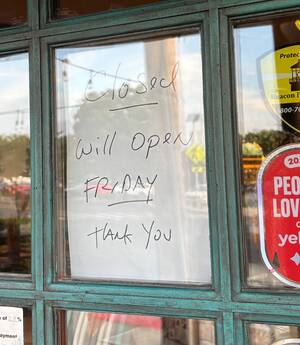 Closed
Will Open
FRIDAY
THANK YOU
Protec
Beacon
800-76
20
PEO
LOV
o
yel
of
payment